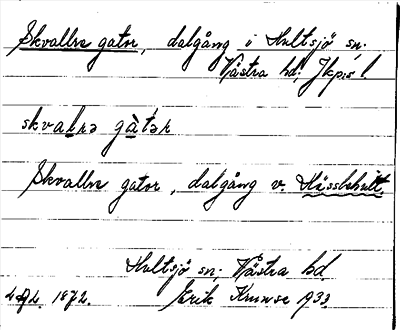 Skvallre gator, dalgång i Hultsjö sn.
Västra hd. Jkp:s l.
skvalrə gàtər
Skvallre gator, dalgång v. Hässlehult.
Hultsjö sn. Västra hd.
1872. Erik Kruuse 1933